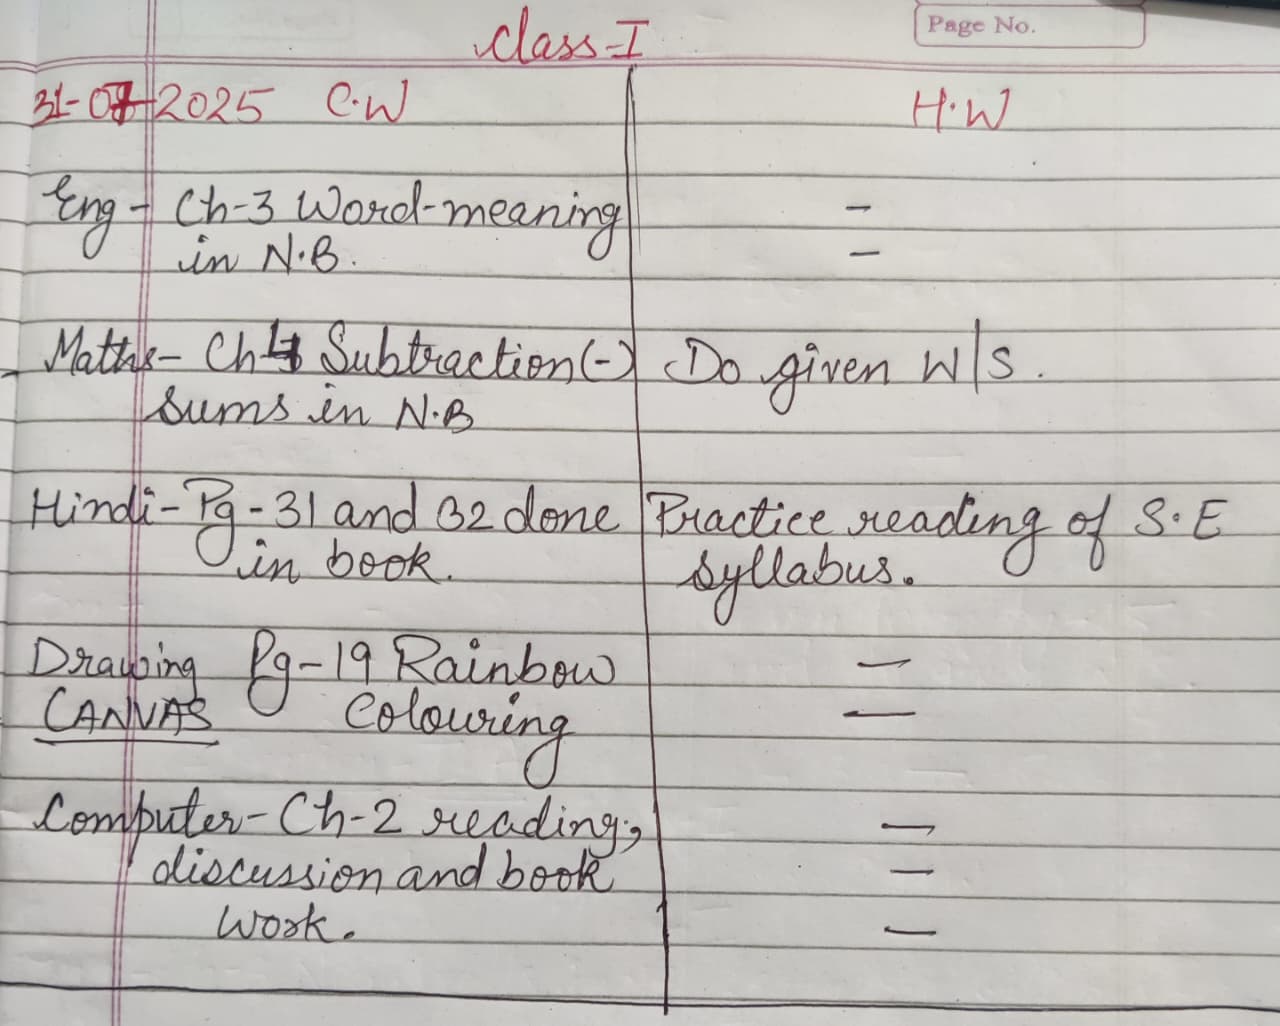 Page No.
Class-I
31-07-2025 C.W H.W
Eng- Ch-3 Word-meaning -
in N.B. -
Maths- Ch 4 Subtraction(-) Do given W/S.
Sums in N.B
Hindi- Pg-31 and 32 done Practice reading of S.E
in book. syllabus.
Drawing Pg-19 Rainbow —
CANVAS Colouring —
Computer- Ch-2 reading, —
discussion and book —
work. —